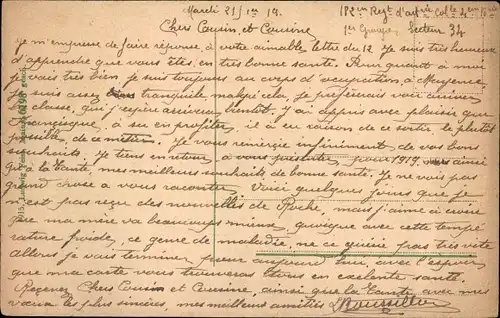 Mardi 21/1er 19.
182em Regt d'art
1er Groupe, Secteur 34
Chers Cousin et Cousine
Je m'empresse de faire réponse à votre aimable lettre du 12 Je suis très heureux
d'apprendre que vous êtes en très bonne santé. Pour quant à moi
je vais très bien, je suis toujours au corps d'occupation, à Mayence
Je suis assez tranquile, malgré cela, je préferais voir arriver
la classe, qui j'espère arrivera bientôt. J'ai appris avec plaisir que
à su en profiter, il a eu raison de ce sortir le plutôt
possible, de ce métier. Je vous remercie infiniment de vos bons
souhaits. Je tiens en retour à vous présenter pour 1919 ainsi
qu'à la Tante, mes meilleurs souhaits de bonne santé. Je ne vois pas
grand chose a vous raconter. Voici quelques jours que je
n'est pas reçu des nouvelles de Roche, mais j'aime à croire
que ma mère va beaucoup mieux, quoique avec cette tempé
rature froide, ce genre de maladie, ne ce guéri pas très vite
Allons je vais terminer pour aujourd'hui, avec l'espoir
que ma carte vous trouveras tous en excelente santé.
Recevez Chers Cousin et Cousine, ainsi que la Tante avec mes
vœux les plus sincères, mes meilleurs amitiés